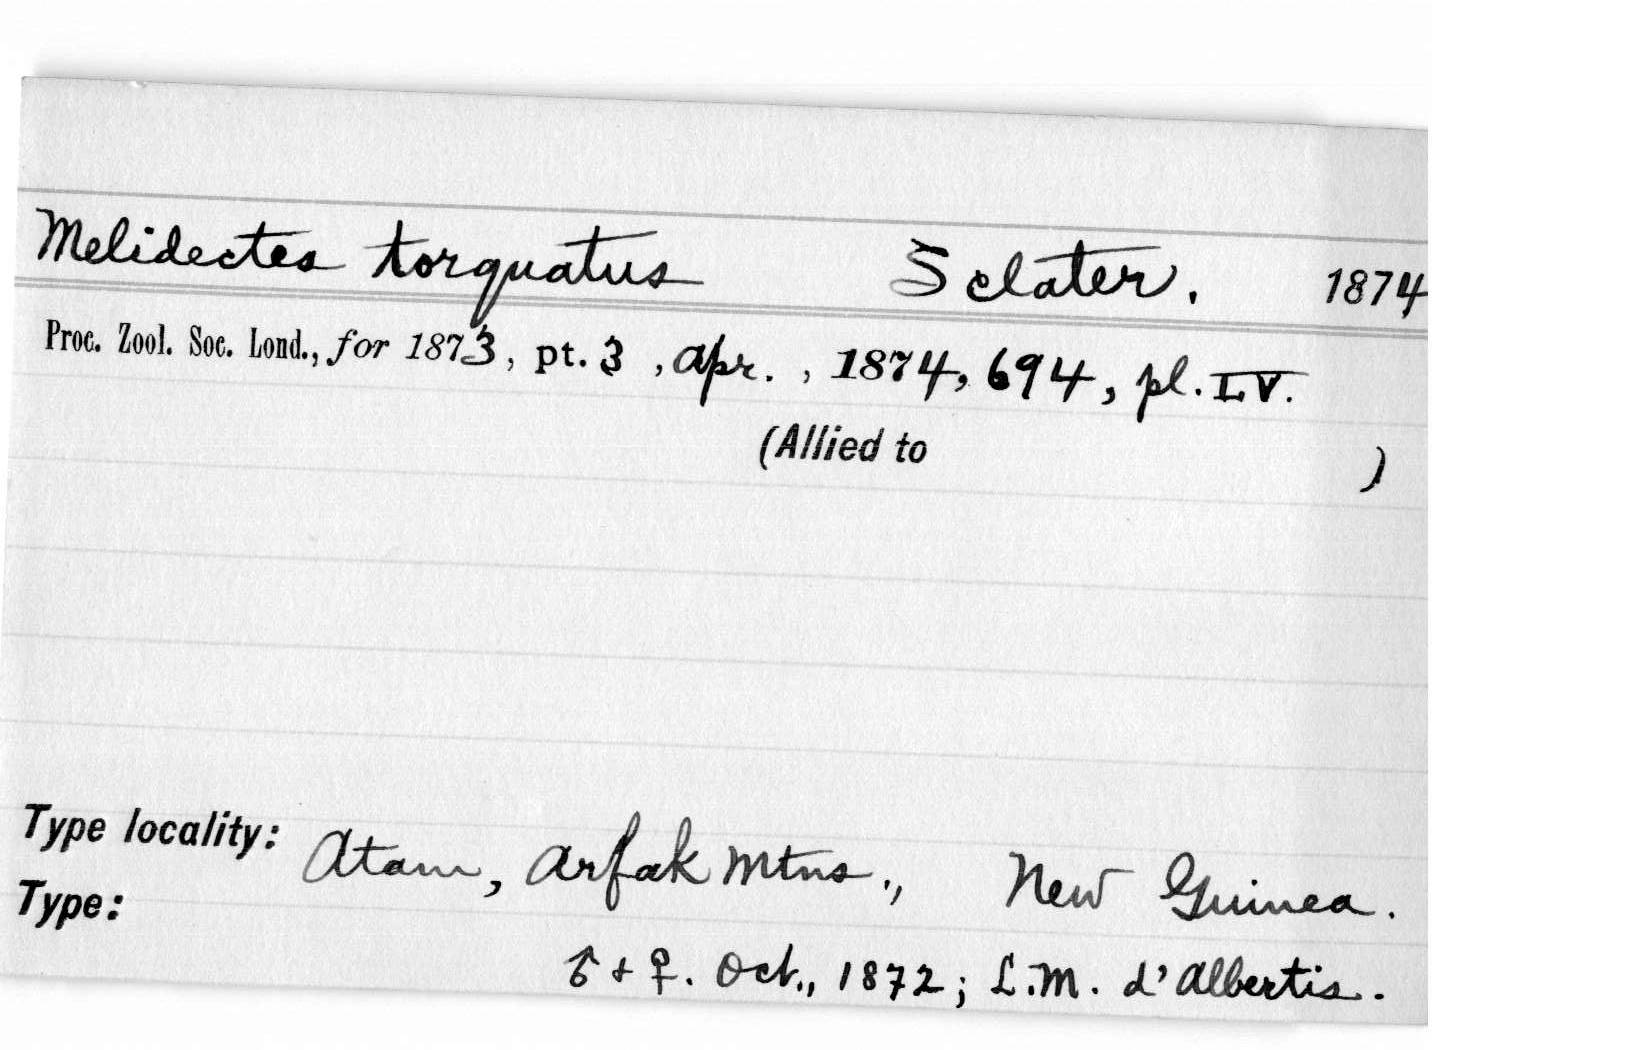 Melidectes torquatus Sclater. 1874
Proc. Zool. Soc. Lond., for 1873, pt. 3, Apr., 1874, 694, pl. LV.
(Allied to )
Type locality: Atam, Arfak Mtns., New Guinea.
Type:
♂ + ♀. Oct., 1872; L.M. d'Albertis.